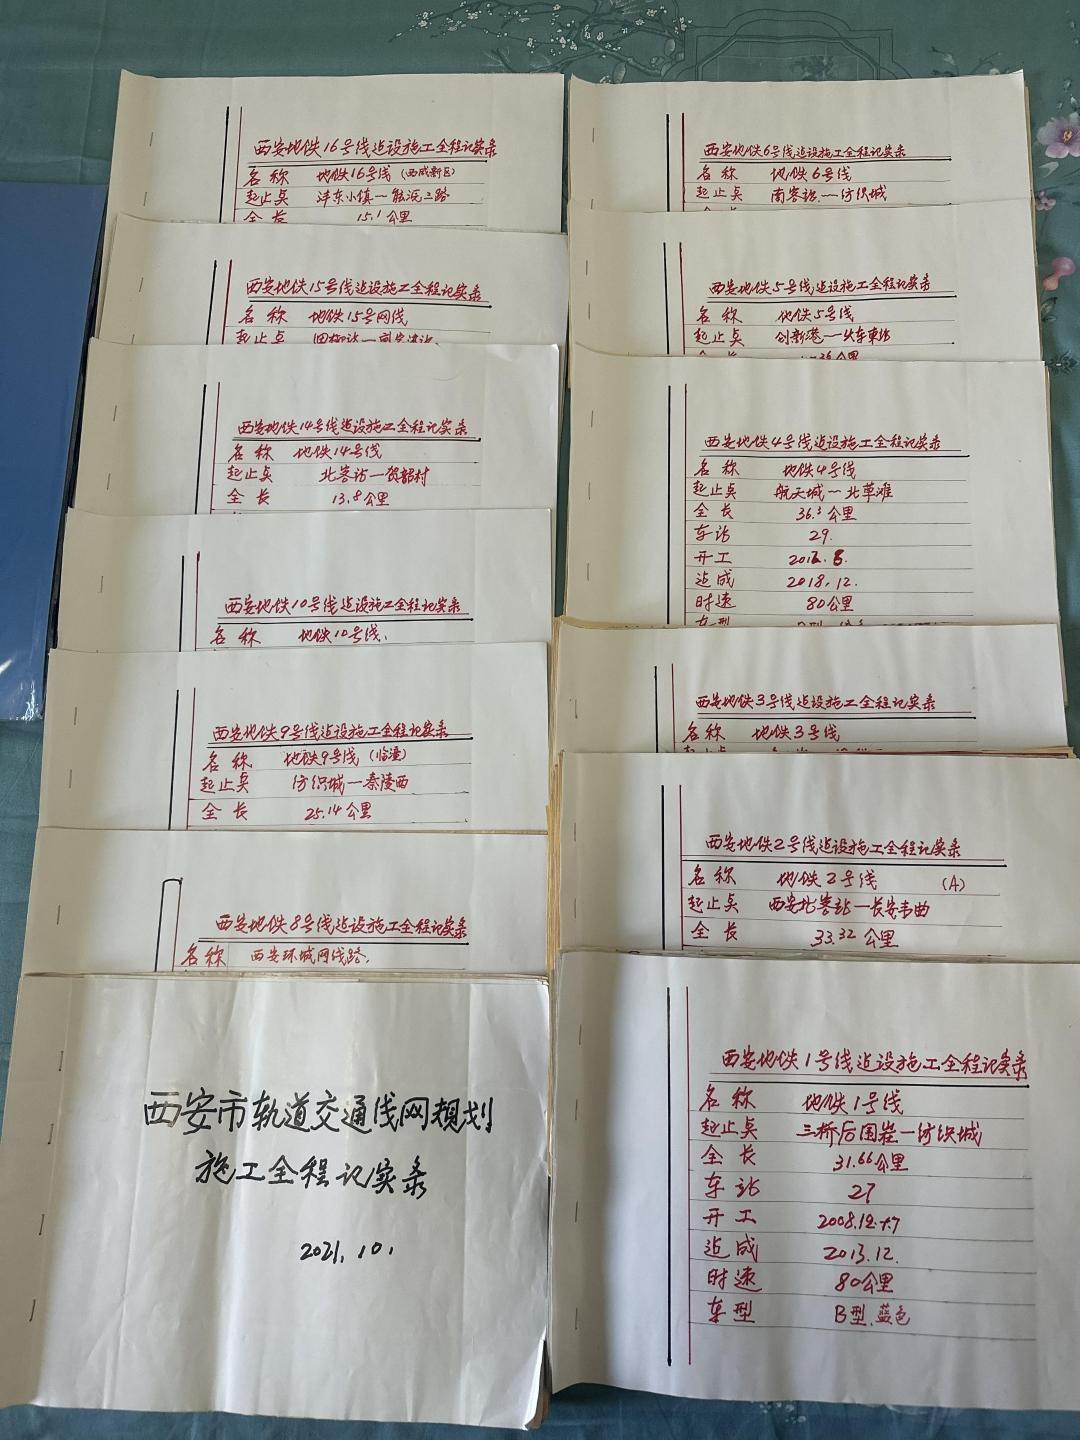 西安地铁16号线造设施工全程记实录
名称 地铁16号线(西咸新区)
起止点 沣东小镇一能源三路
全长 15.1公里
西安地铁15号线造设施工全程记实录
名称 地铁15号网线
起止点
西安地铁14号线造设施工全程记实录
名称 地铁14号线
起止点 北客站一贺韶村
全长 13.8公里
西安地铁10号线造设施工全程记实录
名称 地铁10号线.
西安地铁9号线造设施工全程记实录
名称 地铁9号线(临潼)
起止点 纺织城一秦陵西
全长 25.14公里
西安地铁8号线造设施工全程记实录
名称 西安环城网线路.
西安市轨道交通线网规划
施工全程记实录
2021.10.
西安地铁6号线造设施工全程记实录
名称 地铁6号线
起止点 南客站一纺织城
西安地铁5号线造设施工全程记实录
名称 地铁5号线
起止点 创新港一火车東站
全长 公里
西安地铁4号线造设施工全程记实录
名称 地铁4号线
起止点 航天城一北草滩
全长 36.3公里
车站 29.
开工
造成 2018.12.
时速 80公里
车型 B型
西安地铁3号线造设施工全程记实录
名称 地铁3号线
西安地铁2号线造设施工全程记实录
名称 地铁2号线 (A)
起止点 西安北客站一长安韦曲
全长 33.32公里
西安地铁1号线造设施工全程记实录
名称 地铁1号线
起止点 三桥后围寨一纺织城
全长 31.66公里
车站 27
开工
造成 2013.12.
时速 80公里
车型 B型.蓝色